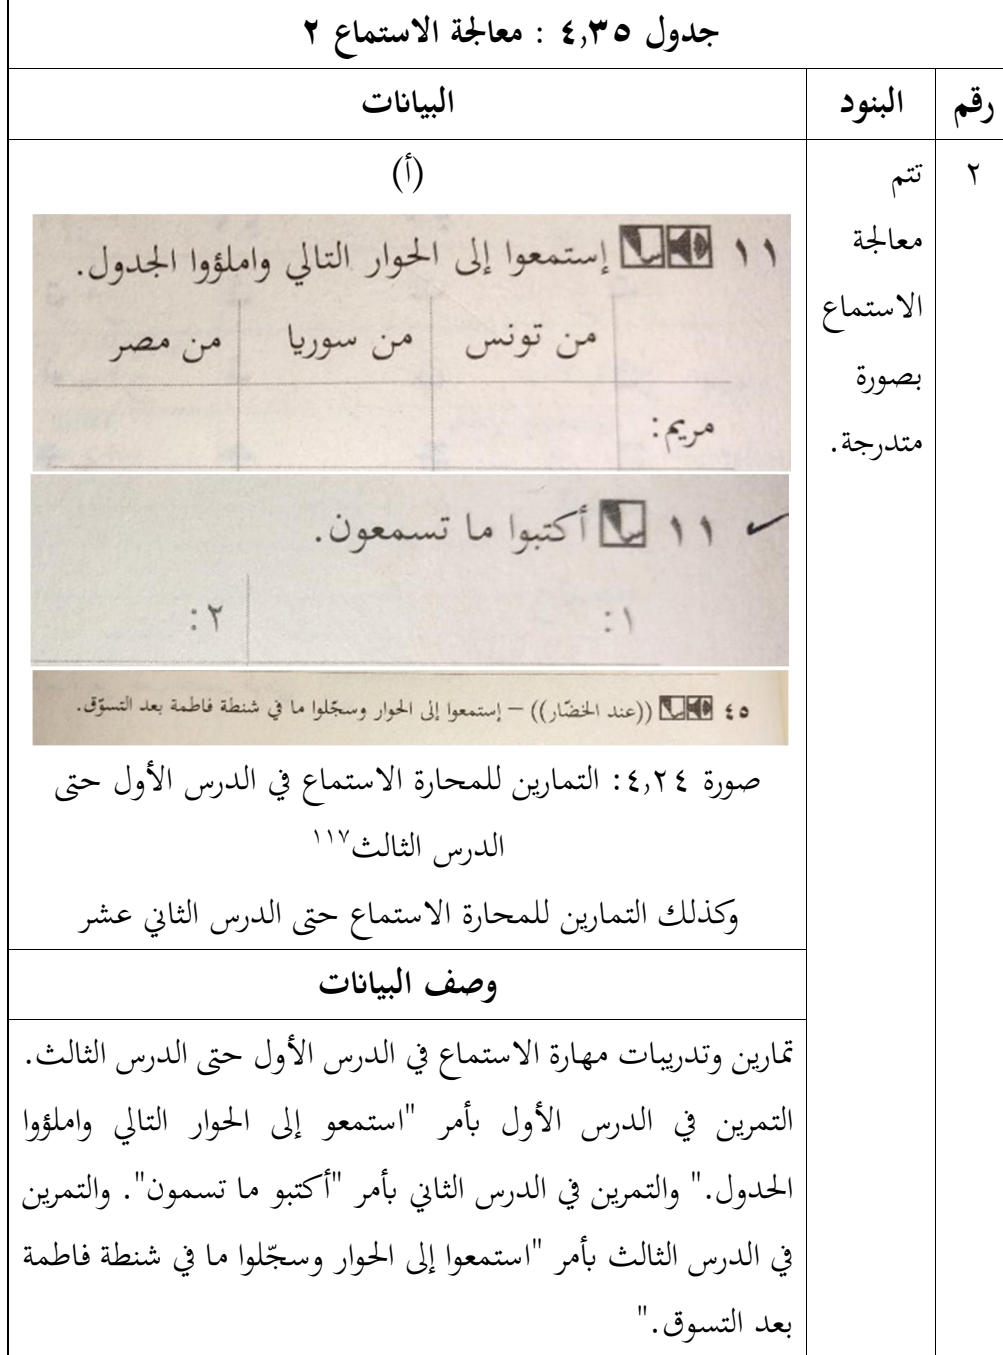 جدول ٤,٣٥ : معالجة الاستماع ٢
رقم البنود البيانات
٢
تتم
معالجة
الاستماع
بصورة
متدرجة.
(أ)
١١ إستمعوا إلى الحوار التالي واملؤوا الجدول.
من تونس من سوريا من مصر
مريم:
١١ أكتبوا ما تسمعون.
١: ٢:
٤٥ ((عند الخضّار)) – إستمعوا إلى الحوار وسجّلوا ما في شنطة فاطمة بعد التسوّق.
صورة ٤,٢٤: التمارين للمحارة الاستماع في الدرس الأول حتى
الدرس الثالث١١٧
وكذلك التمارين للمحارة الاستماع حتى الدرس الثاني عشر
وصف البيانات
تمارين وتدريبات مهارة الاستماع في الدرس الأول حتى الدرس الثالث.
التمرين في الدرس الأول بأمر "استمعو إلى الحوار التالي واملؤوا
الحدول." والتمرين في الدرس الثاني بأمر "أكتبو ما تسمون". والتمرين
في الدرس الثالث بأمر "استمعوا إلى الحوار وسجّلوا ما في شنطة فاطمة
بعد التسوق."